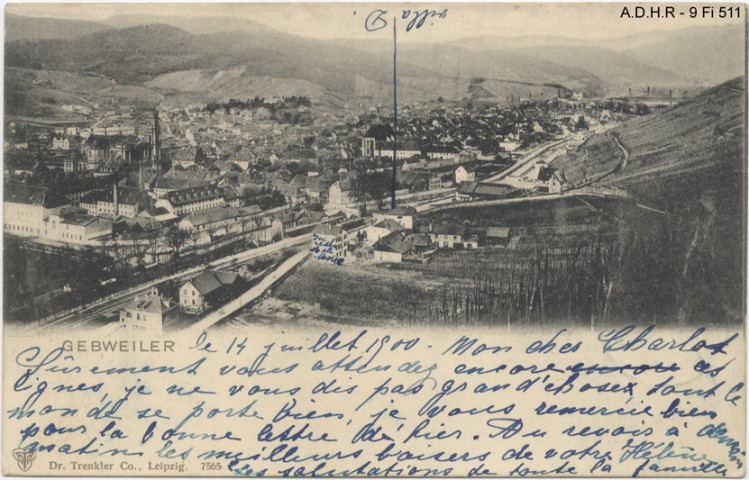 A.D.H.R - 9 Fi 511
villa D.
GEBWEILER le 14 juillet 1900. Mon cher Charlot
Sûrement vous attendez encore encore ces
lignes, je ne vous dis pas grand'chose, tout le
monde se porte bien, je vous remercie bien
pour la bonne lettre de hier. Au revoir à demain
matin les meilleurs baisers de votre Hélène
Les salutations de toute la famille
Dr. Trenkler Co., Leipzig. 7565